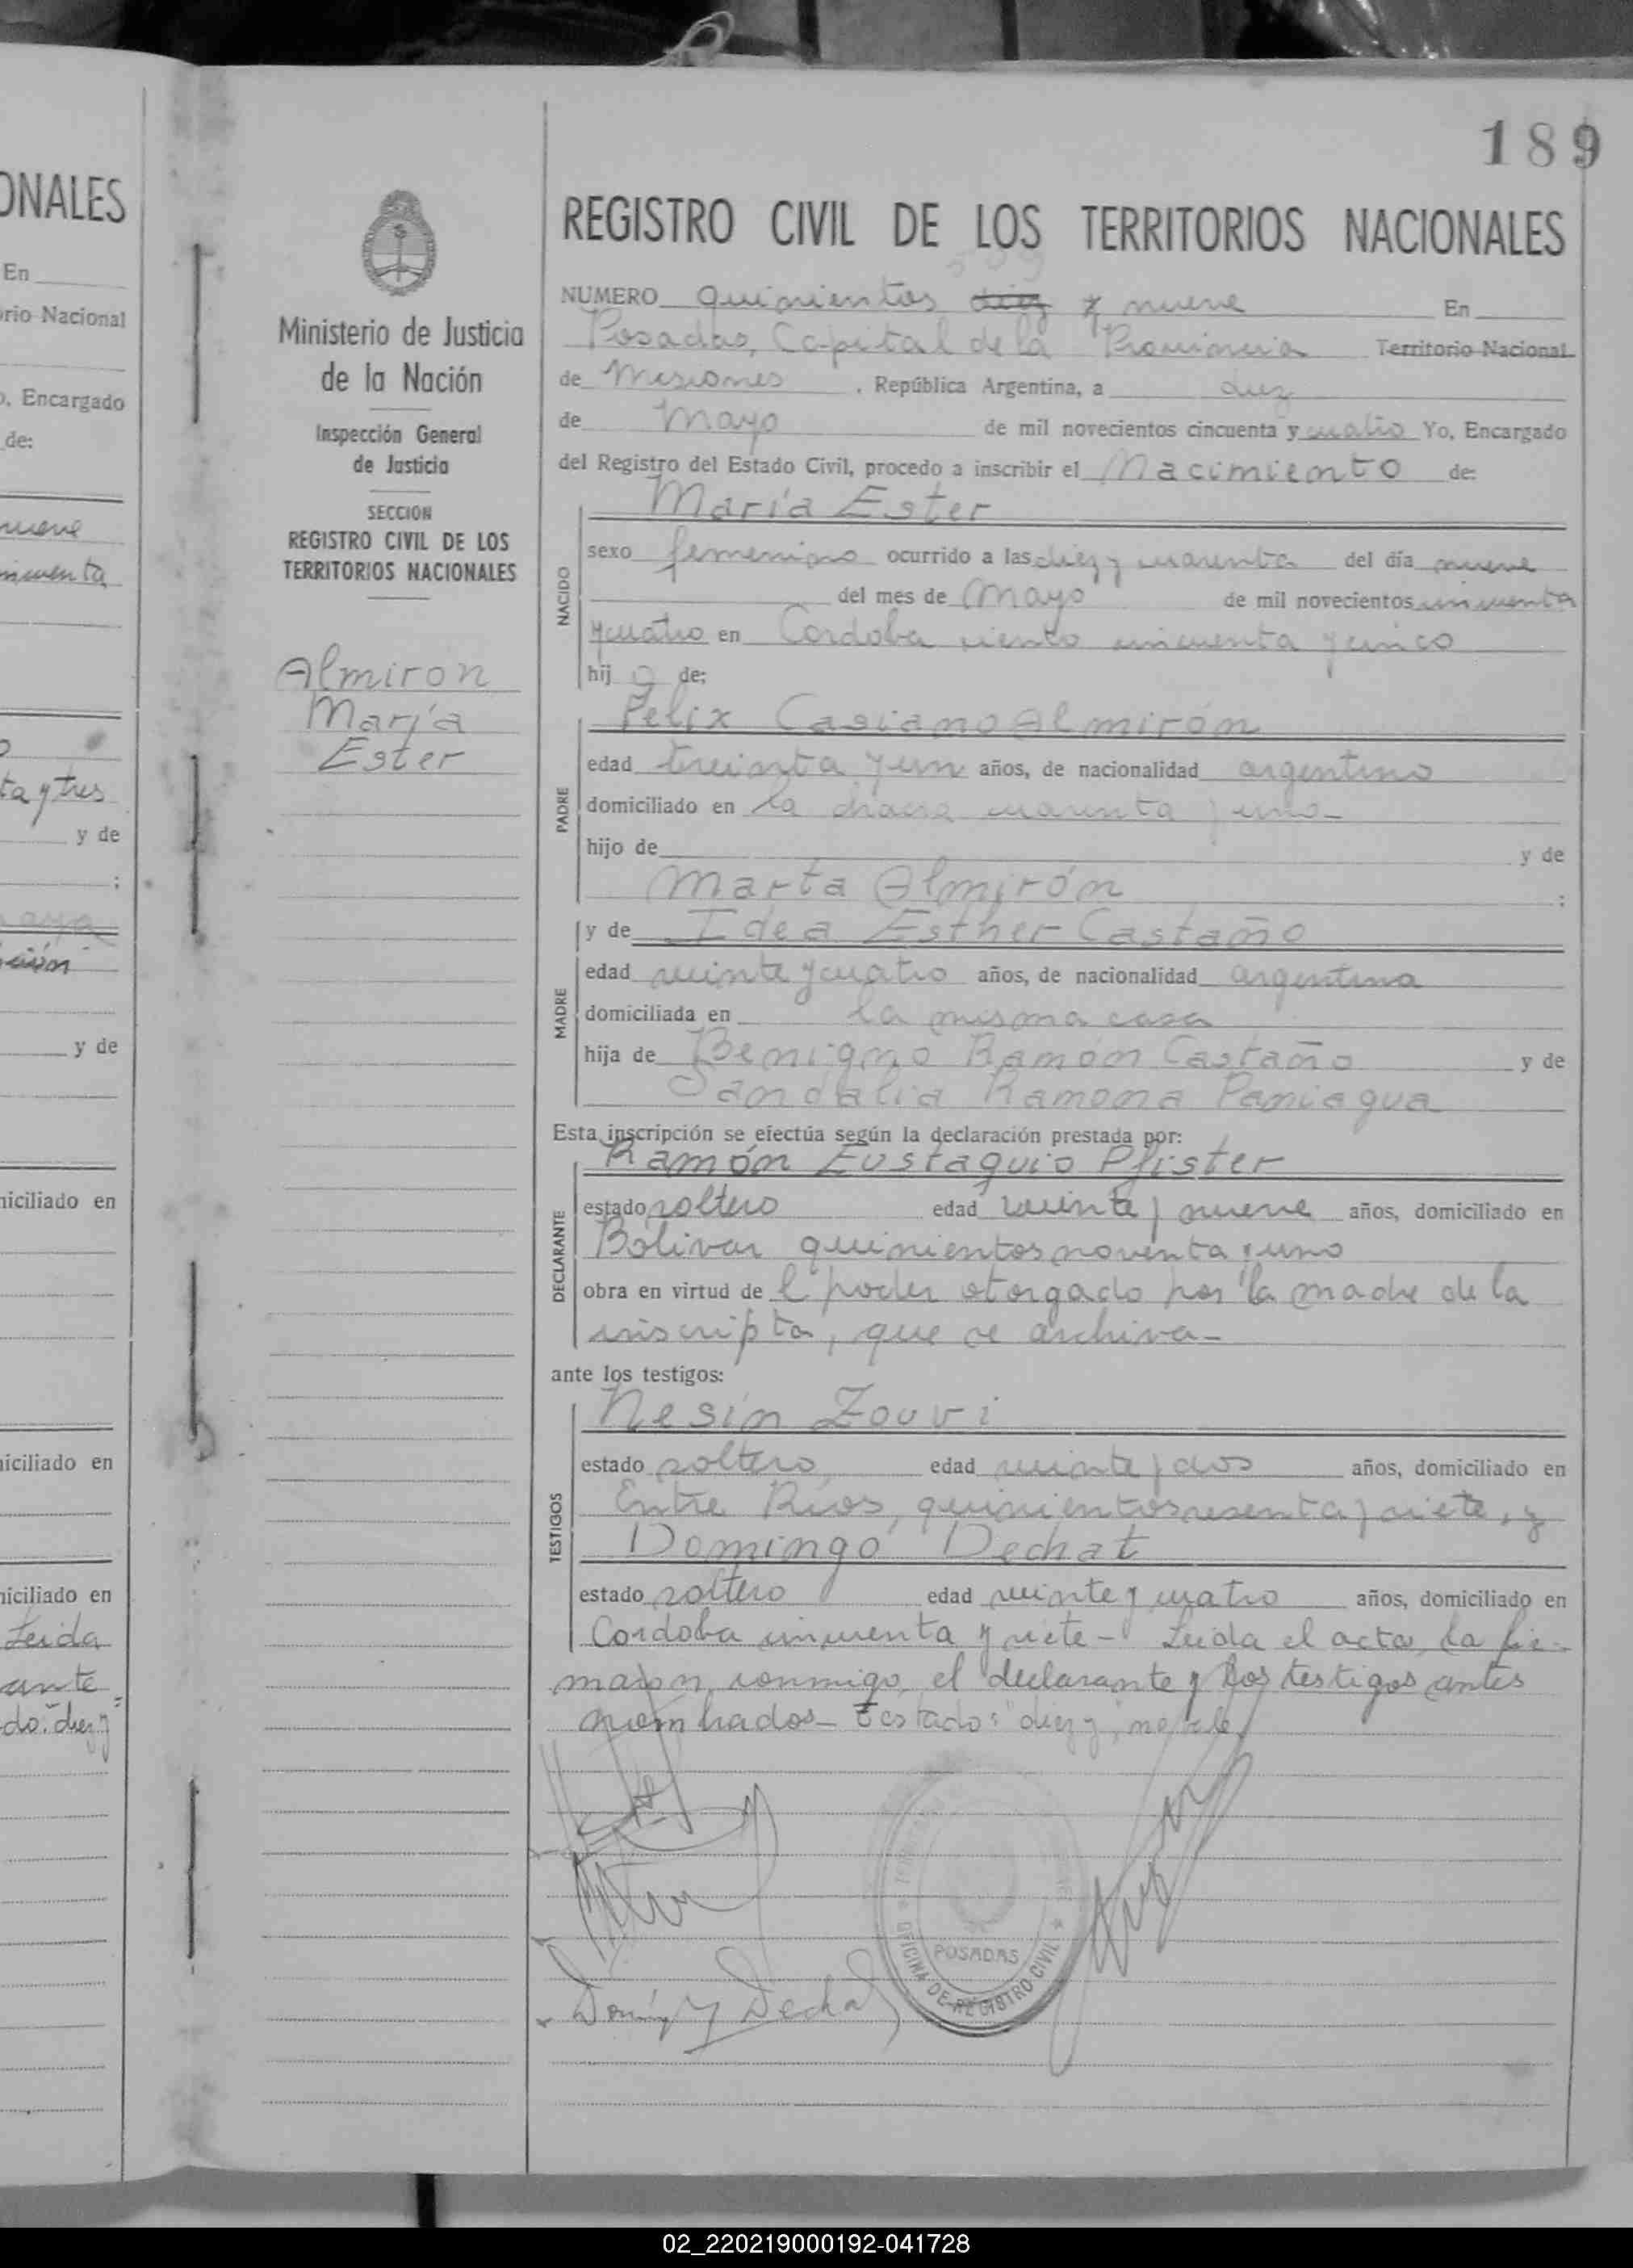 ONALES
En
rio Nacional
o, Encargado
de:
nueve
cincuenta
ta y tres
y de
;
y de
niciliado en
niciliado en
niciliado en
Leida
ante
do: "diez y"
Ministerio de Justicia
de la Nación
Inspección General
de Justicia
SECCION
REGISTRO CIVIL DE LOS
TERRITORIOS NACIONALES
Almirón
María
Ester
189
REGISTRO CIVIL DE LOS TERRITORIOS NACIONALES
509
NUMERO quinientos diez y nueve En
Posadas, Capital de la Provincia Territorio Nacional
de Misiones, República Argentina, a diez
de Mayo de mil novecientos cincuenta y cuatro Yo, Encargado
del Registro del Estado Civil, procedo a inscribir el Nacimiento de:
María Ester
NACIDO
sexo femenino ocurrido a las diez y cuarenta del día nueve
del mes de Mayo de mil novecientos cincuenta
y cuatro en Cordoba ciento cincuenta y cinco
hij a de:
Felix Casiano Almirón
PADRE
edad treinta y un años, de nacionalidad argentino
domiciliado en la chacra cuarenta y uno-
hijo de y de
Marta Almirón ;
y de Idea Esther Castaño
MADRE
edad veinte y cuatro años, de nacionalidad argentina
domiciliada en la misma casa
hija de Benigno Ramón Castaño y de
Sandalia Ramona Paniagua
Esta inscripción se efectúa según la declaración prestada por:
Ramón Eustaquio Pfister
DECLARANTE
estado soltero edad veinte y nueve años, domiciliado en
Bolivar quinientos noventa y uno
obra en virtud de l poder otorgado por la madre de la
inscripta, que se archiva-
ante los testigos:
Nesin Zouvi
TESTIGOS
estado soltero, edad veinte y dos años, domiciliado en
Entre Ríos, quinientos sesenta y siete, y
Domingo Dechat
estado soltero edad veinte y cuatro años, domiciliado en
Cordoba cincuenta y siete- Leida el acta, la fir-
maron conmigo, el declarante y los testigos antes
nombrados- Testado: "diez y", no vale.
POSADAS
OFICINA DE REGISTRO CIVIL
Domingo Dechat
02_220219000192-041728